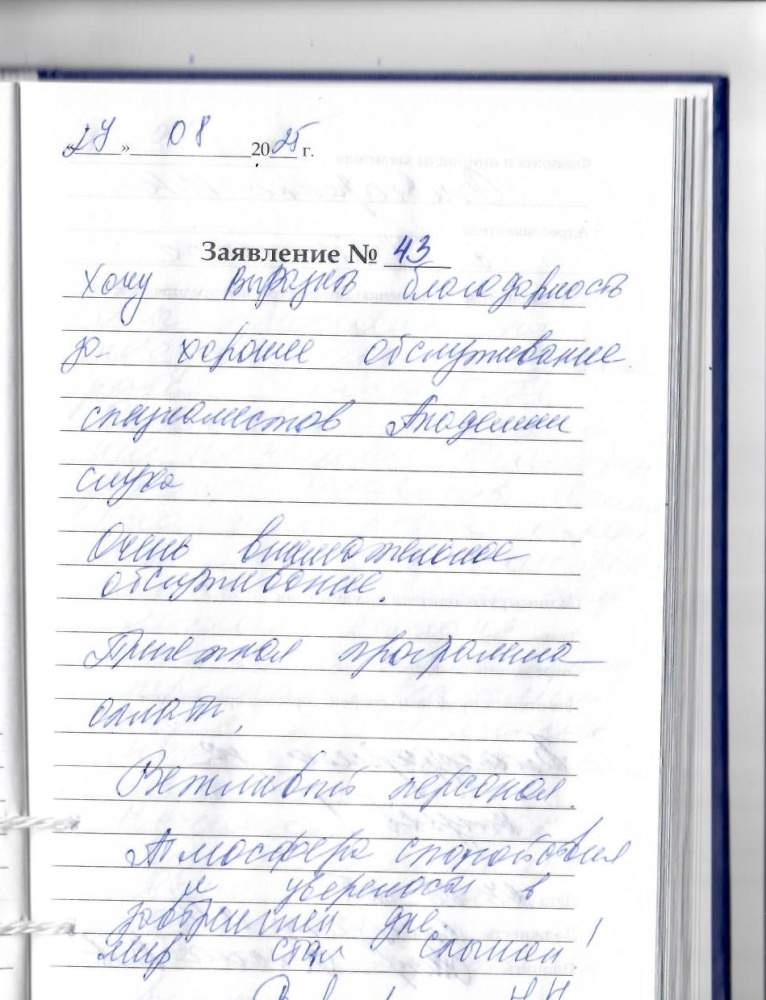 «24» 08 2025 г.
Заявление № 43
Хочу выразить благодарность
за хорошее обслуживание
специалистов Академии
слуха
Очень внимательное
обслуживание.
Приятная программа
оплаты,
Вежливый персонал.
Атмосфера спокойствия
и уверености в
завтрешнем дне.
Мир стал слышен!